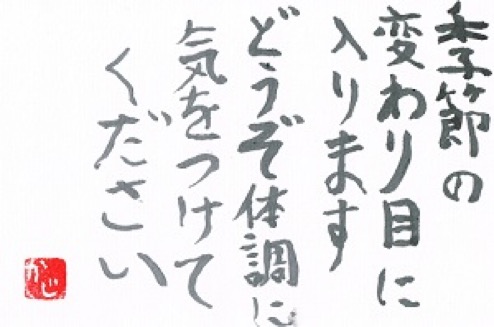 季節の
変わり目に
入ります
どうぞ体調に
気をつけて
ください
かじ